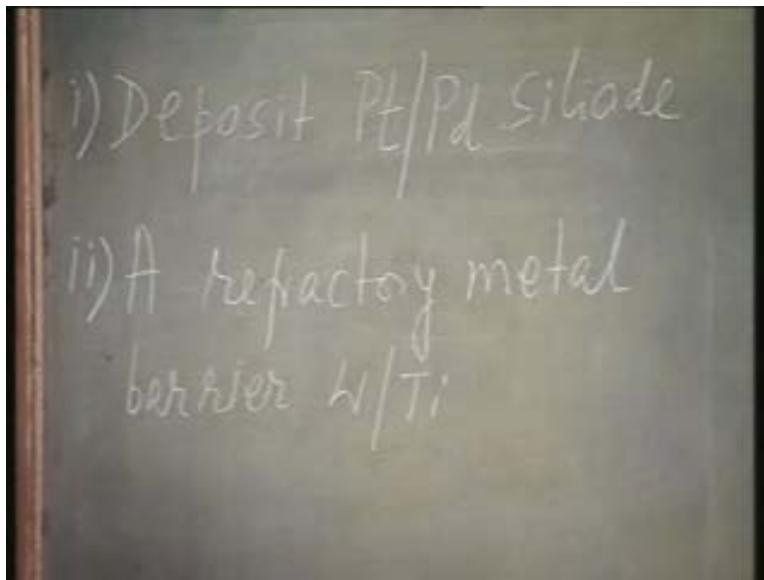 i) Deposit Pt/Pd Silicide
ii) A refractory metal
barrier W/Ti